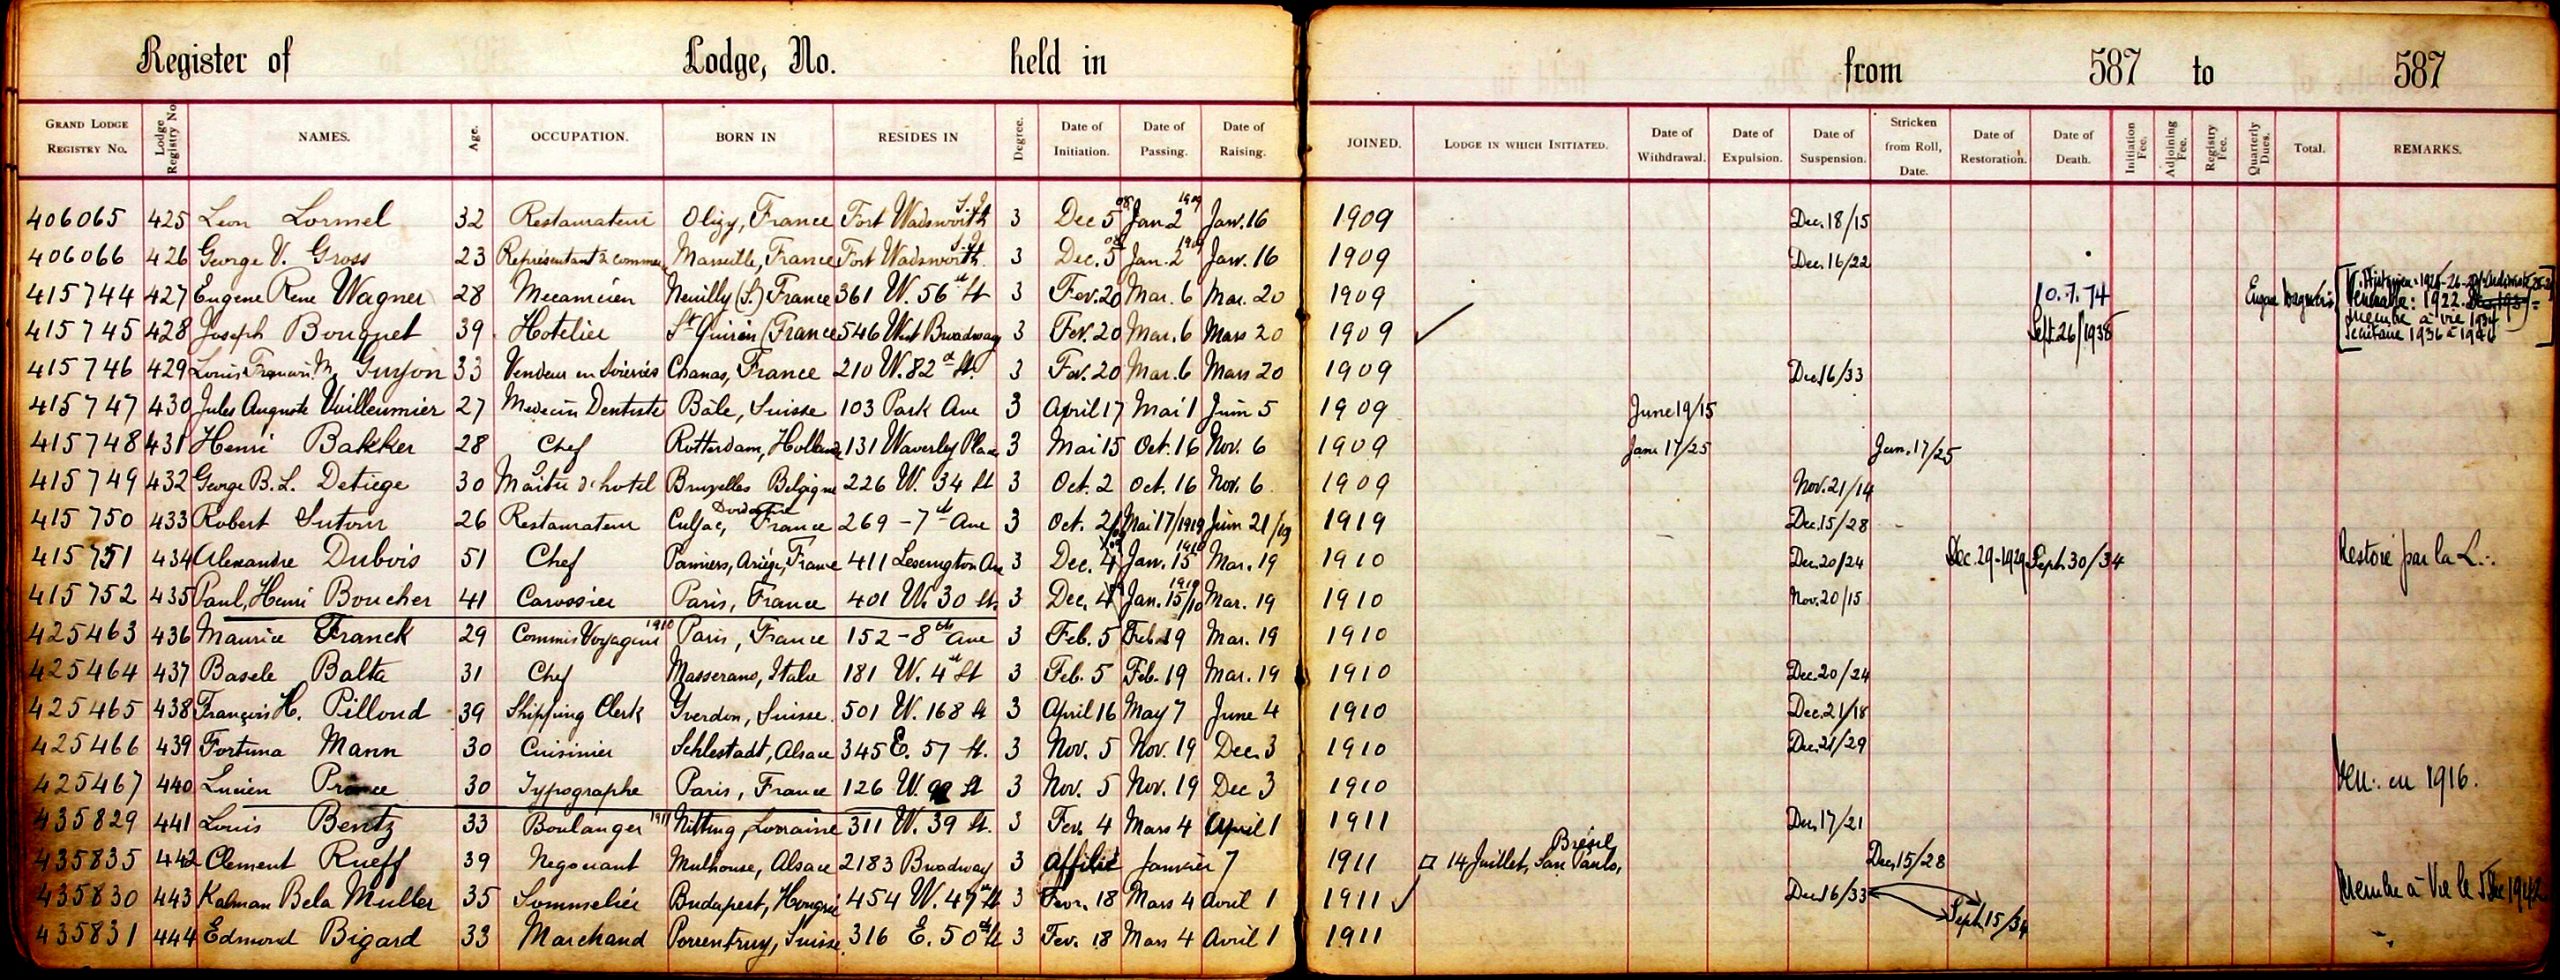 Register of Lodge, No. held in from 587 to 587
GRAND LODGE REGISTRY NO. Lodge Registry No. NAMES. Age. OCCUPATION. BORN IN RESIDES IN Degree. Date of Initiation. Date of Passing. Date of Raising. JOINED. LODGE IN WHICH INITIATED. Date of Withdrawal. Date of Expulsion. Date of Suspension. Stricken from Roll, Date. Date of Restoration. Date of Death. Initiation Fee. Adjoining Fee. Registry Fee. Quarterly Dues. Total. REMARKS.
406065 425 Leon Lormel 32 Restaurateur Olizy, France Fort Wadsworth S.I. 3 Dec 5 08 Jan 2 1909 Jan. 16 1909 Dec. 18/15
406066 426 George V. Gross 23 Représentant Marseille, France Fort Wadsworth S.I. 3 Dec. 5 08 Jan. 2 1909 Jan. 16 1909 Dec. 16/22
415744 427 Eugene Rene Wagner 28 Mecanicien Neuilly (S.) France 361 W. 56 st St 3 Fev. 20 Mar. 6 Mar. 20 1909 10.7.74 Venerable: 1922.
415745 428 Joseph Bouquet 39 Hotelier St Quirin (France 546 West Broadway 3 Fev. 20 Mar. 6 Mars 20 1909 ✓ Sept 26/1938 membre à vie 1934 Secrétaire 1936 à 1946
415746 429 Louis M. Guyon 33 Vendeur en Soieries Chanas, France 210 W. 82 d St. 3 Fev. 20 Mar. 6 Mars 20 1909 Dec. 16/33
415747 430 Jules Auguste Vuilleumier 27 Medecin Dentiste Bâle, Suisse 103 Park Ave 3 April 17 Mai 1 Juin 5 1909 June 19/15
415748 431 Henri Bakker 28 Chef Rotterdam, Hollande 131 Waverley Place 3 Mai 15 Oct. 16 Nov. 6 1909 Jan. 17/25 Jan. 17/25
415749 432 George B. L. Detiege 30 Maitre d'hotel Bruxelles Belgique 226 W. 34 St 3 Oct. 2 Oct. 16 Nov. 6 1909 Nov. 21/14
415750 433 Robert Sutour 26 Restaurateur France 269 - 7 th Ave 3 Oct. Mai 17/1919 Juin 21/19 1919 Dec. 15/28
415751 434 Alexandre Dubois 51 Chef Pamiers, Ariège, France 411 Lexington Ave 3 Dec. 4 Jan. 15 1910 Mar. 19 1910 Dec. 20/24 Dec. 29-1929 Sept. 30/34 Restoré par la L∴
415752 435 Paul, Henri Boucher 41 Carossier Paris, France 401 W. 30 St. 3 Dec. 4 Jan. 15/10 1910 Mar. 19 1910 Nov. 20/15
425463 436 Maurice Franck 29 Commis Voyageur 1910 Paris, France 152 - 8 th Ave 3 Feb. 5 Feb. 19 Mar. 19 1910
425464 437 Basele Balta 31 Chef Masserano, Italie 181 W. 4 st St 3 Feb. 5 Feb. 19 Mar. 19 1910 Dec. 20/24
425465 438 François H. Pilloud 39 Shipping Clerk Yverdon, Suisse. 501 W. 168 St 3 April 16 May 7 June 4 1910 Dec. 21/18
425466 439 Fortuna Mann 30 Cuisinier Schlestadt, Alsace 345 E. 57 St. 3 Nov. 5 Nov. 19 Dec. 3 1910 Dec. 21/29
425467 440 Lucien Prince 30 Typographe Paris, France 126 W. St 3 Nov. 5 Nov. 19 Dec 3 1910 Ven∴ en 1916.
435829 441 Louis Bentz 33 Boulanger 1911 Nitting, Lorraine 311 W. 39 St. 3 Fev. 4 Mars 4 April 1 1911 Dec. 17/21
435835 442 Clement Rueff 39 Negociant Mulhouse, Alsace 2183 Broadway 3 Affilié Janvier 7 1911 14 Juillet, San Paulo, Brésil, Dec. 15/28
435830 443 Kalman Bela Muller 35 Sommelier Budapest, Hongrie 454 W. 47 th St 3 Fevr. 18 Mars 4 Avril 1 1911 ✓ Dec. 16/33 Sept. 15/34 Membre à Vie le 1942
435831 444 Edmond Bigard 33 Marchand Porrentruy, Suisse 316 E. 50 th St 3 Fev. 18 Mars 4 Avril 1 1911